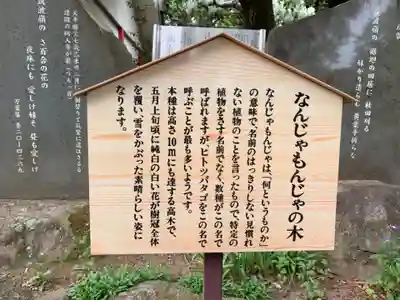 なんじゃもんじゃの木
なんじゃもんじゃは、「何というものか」
の意味で、名前のはっきりしない見慣れ
ない植物のことを言ったもので、特定の
植物をさす名前でなく、数種がこの名で
呼ばれますが、ヒトツバタゴをこの名で
呼ぶことが最も多いようです。
本種は高さ10mにも達する高木で、
五月上旬頃に純白の白い花が樹冠全体
を覆い、雪をかぶった素晴らしい姿に
なります。
筑波嶺の さ百合の花の
夜床にも 愛しけ妹そ 昼も愛しけ